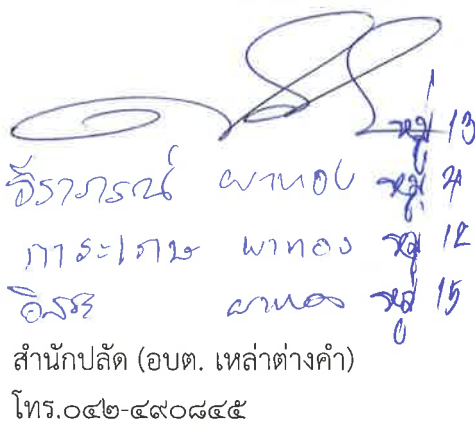 หมู่ 13
จิราภรณ์ ผาทอง หมู่ 4
การะเกษ ผาทอง หมู่ 12
อิสระ ผาทอง หมู่ 15
สำนักปลัด (อบต. เหล่าต่างคำ)
โทร.๐๔๒-๔๙๐๘๔๕